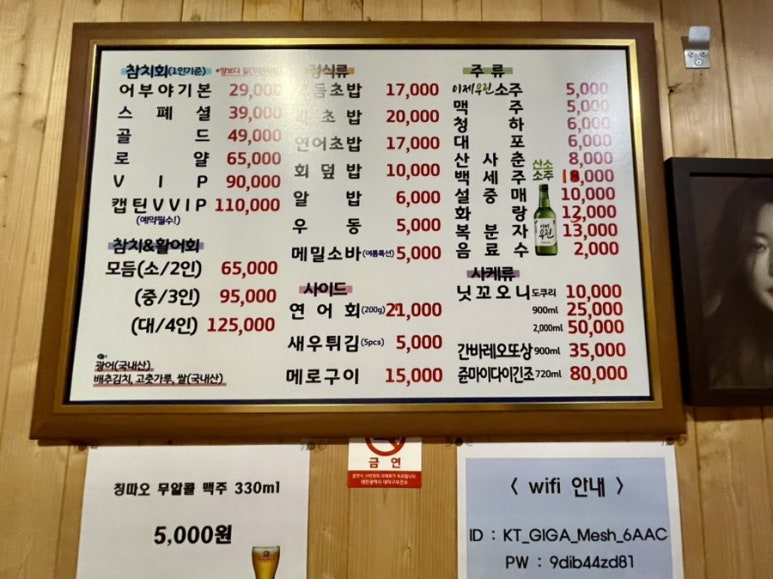 참치회(1인기준)
어부야기본 29,000
스페셜 39,000
골드 49,000
로얄 65,000
V I P 90,000
캡틴VVIP 110,000
(예약필수!)
참치&활어회
모듬(소/2인) 65,000
(중/3인) 95,000
(대/4인) 125,000
광어(국내산)
배추김치, 고춧가루, 쌀(국내산)
정식류
모듬초밥 17,000
초밥 20,000
연어초밥 17,000
회덮밥 10,000
알밥 6,000
우동 5,000
메밀소바(여름특선) 5,000
사이드
연어회(200g) 21,000
새우튀김(5pcs) 5,000
메로구이 15,000
주류
이제우린소주 5,000
맥주 5,000
청하 6,000
대포 6,000
산사춘 8,000
백세주
설중매 10,000
화랑 12,000
복분자 13,000
음료수 2,000
산소
소주
사케류
닛꼬오니 도쿠리 10,000
900ml 25,000
2,000ml 50,000
간바레오또상 900ml 35,000
쥰마이다이긴조 720ml 80,000
금연
칭따오 무알콜 맥주 330ml
5,000원
< wifi 안내 >
ID : KT_GIGA_Mesh_6AAC
PW : 9dib44zd81